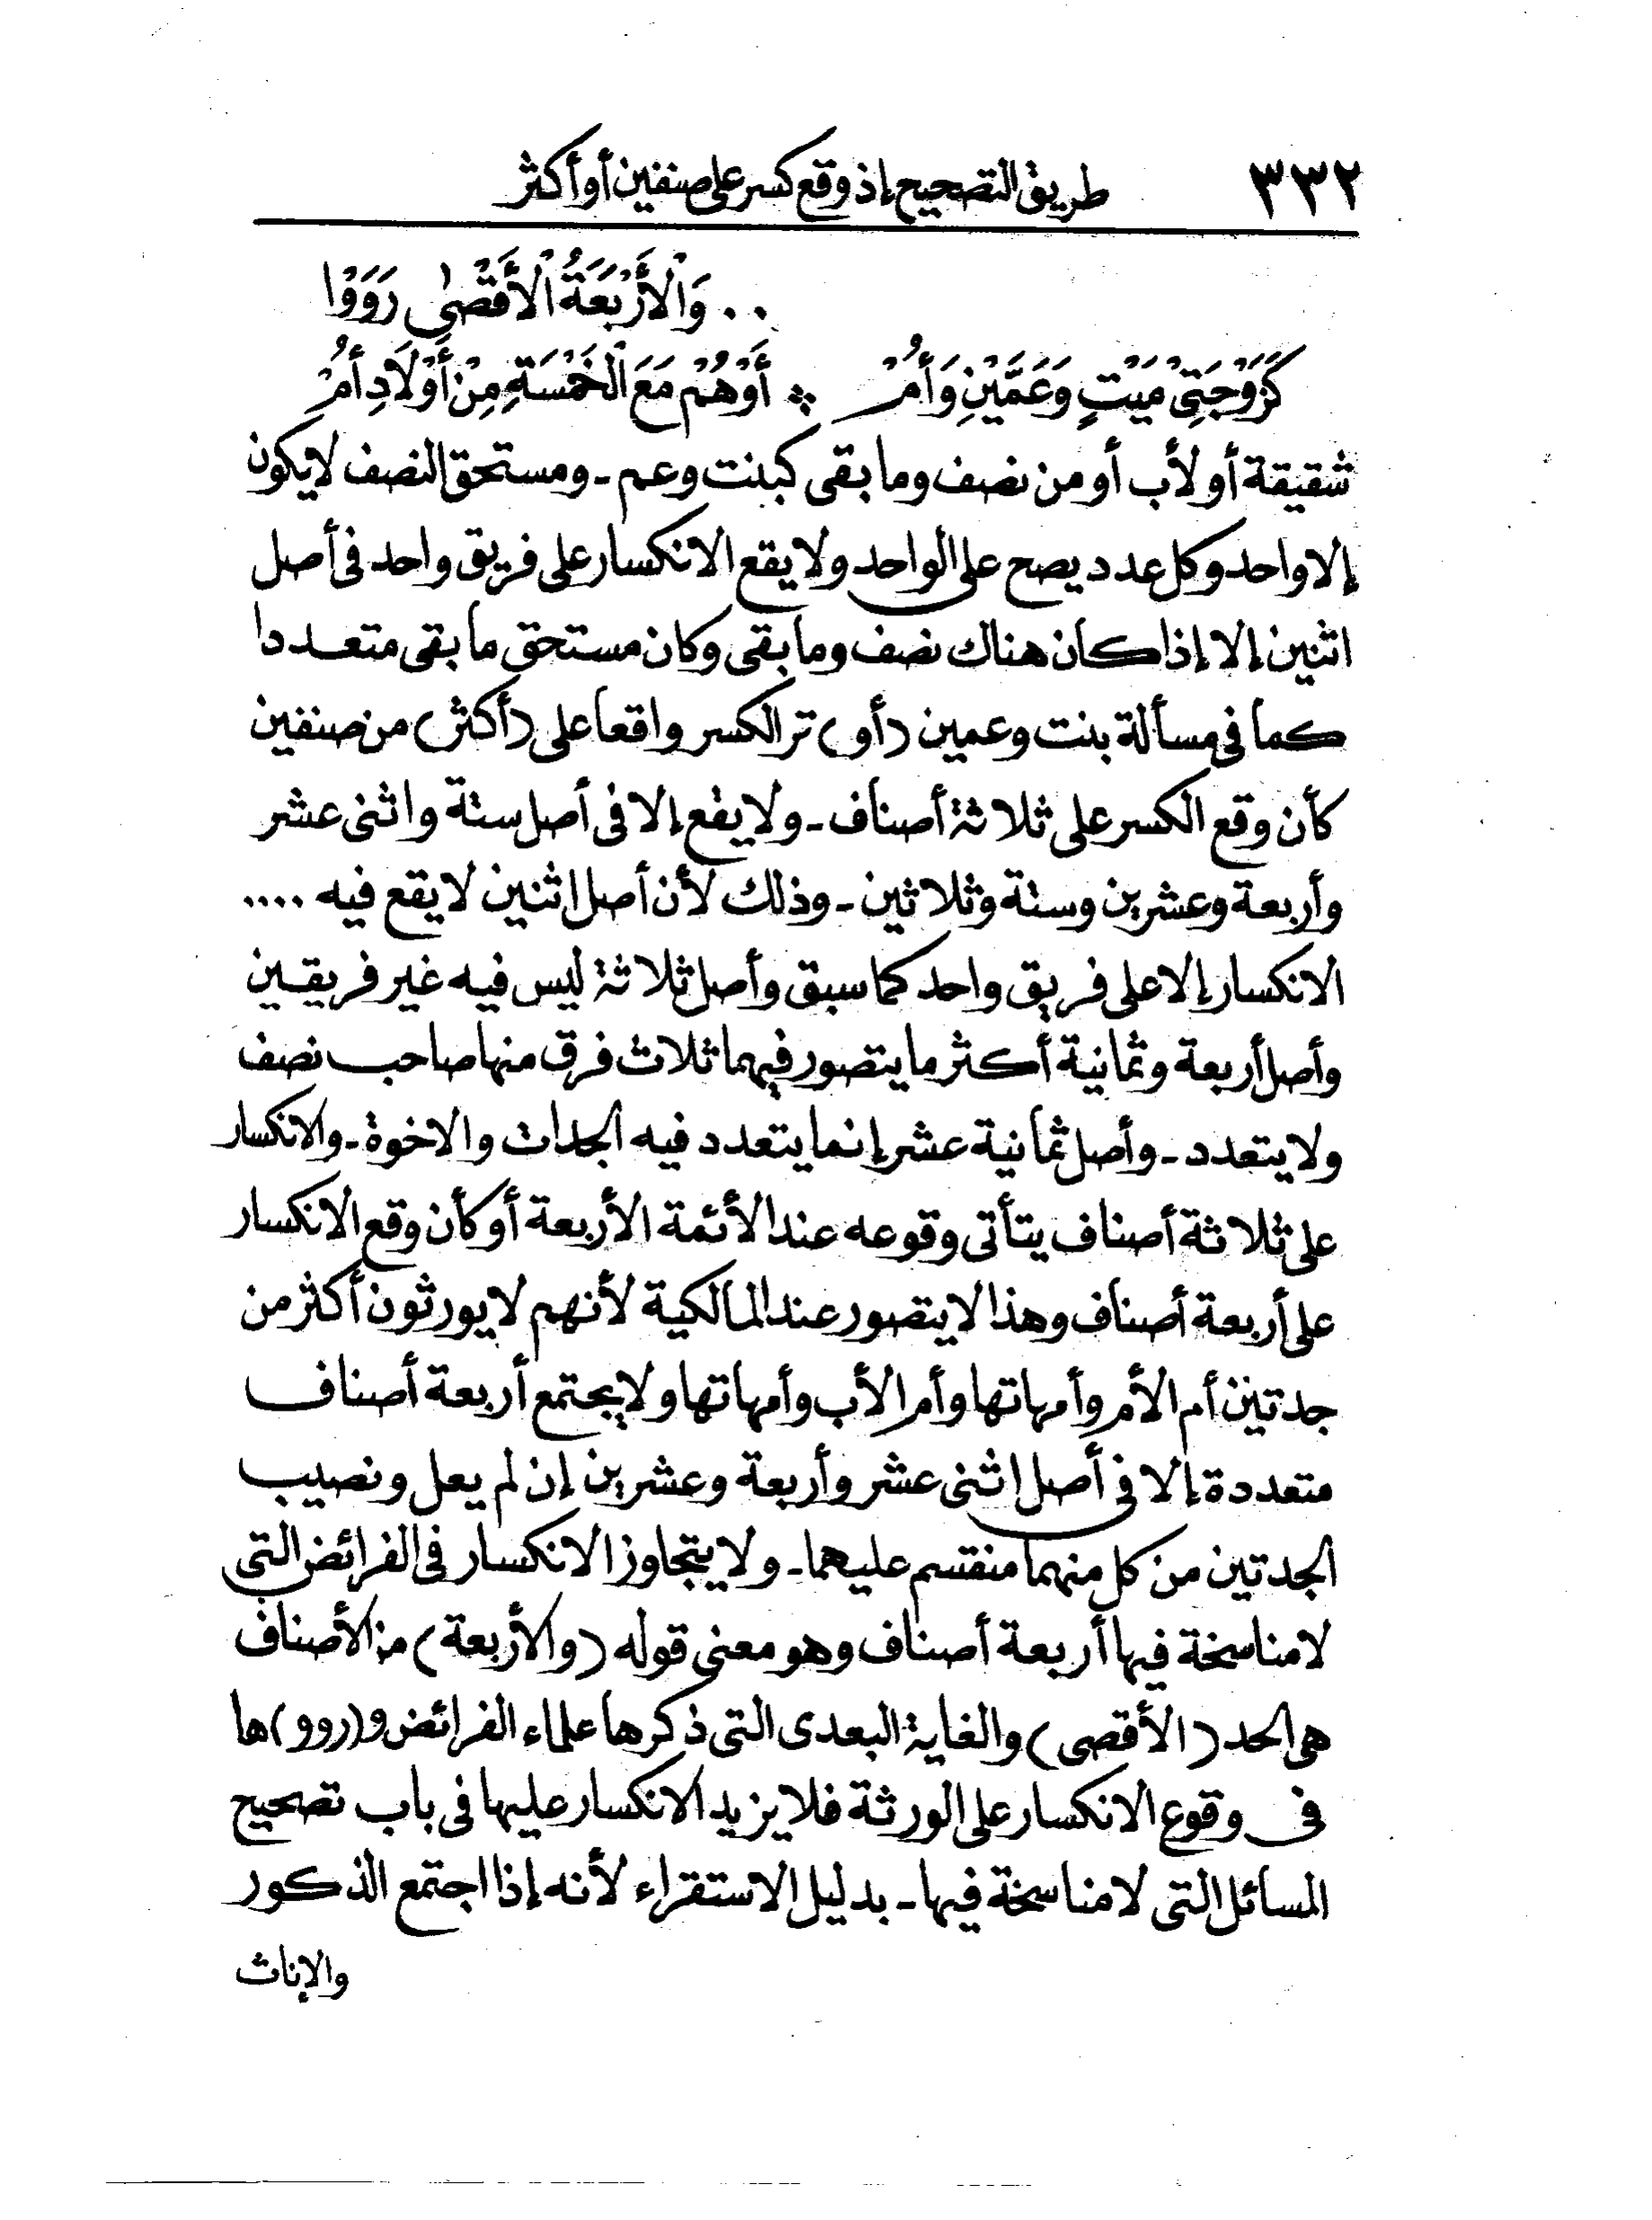 ٣٣٢ طريق التصحيح إذ وقع كسر على صنفين أو أكثر
.. وَالْأَرْبَعَةُ الْأَقْصٰى رَوَوْا
كَزَوْجَتَيْ مَيْتٍ وَعَمَّيْنِ وَأُمْ * أَوْ هُمْ مَعَ الْخَمْسَةِ مِنْ أَوْلَادِ أُمْ
شقيقة أو لأب أو من نصف وما بقى كبنت وعم - ومستحق النصف لا يكون
إلا واحد وكل عدد يصح على الواحد ولا يقع الانكسار على فريق واحد فى أصل
اثنين إلا إذا كان هناك نصف وما بقى وكان مستحق ما بقى متعددا
كما فى مسألة بنت وعمين (أو) تر الكسر واقعا على (أكثر) من صنفين
كأن وقع الكسر على ثلاثة أصناف - ولا يقع إلا فى أصل ستة واثنى عشر
وأربعة وعشرين وستة وثلاثين - وذلك لأن أصل اثنين لا يقع فيه ....
الانكسار إلا على فريق واحد كما سبق وأصل ثلاثة ليس فيه غير فريقين
وأصل أربعة وثمانية أكثر ما يتصور فيهما ثلاث فرق منها صاحب نصف
ولا يتعدد - وأصل ثمانية عشر إنما يتعدد فيه الجدات والاخوة - والانكسار
على ثلاثة أصناف يتأتى وقوعه عند الأئمة الأربعة أو كأن وقع الانكسار
على أربعة أصناف وهذا لا يتصور عند المالكية لأنهم لا يورثون أكثر من
جدتين أم الأم وأمهاتها وأم الأب وأمهاتها ولا يجتمع أربعة أصناف
متعددة إلا فى أصل اثنى عشر وأربعة وعشرين إن لم يعل ونصيب
الجدتين من كل منهما منقسم عليهما - ولا يتجاوز الانكسار فى الفرائض التى
لا مناسخة فيها أربعة أصناف وهو معنى قوله (والأربعة) من الأصناف
هى الحد (الأقصى) والغاية البعدى التى ذكرها علماء الفرائض و(روو)ها
فى وقوع الانكسار على الورثة فلا يزيد الانكسار عليها فى باب تصحيح
المسائل التى لا مناسخة فيها - بدليل الاستقراء لأنه إذا اجتمع الذكور
والإناث